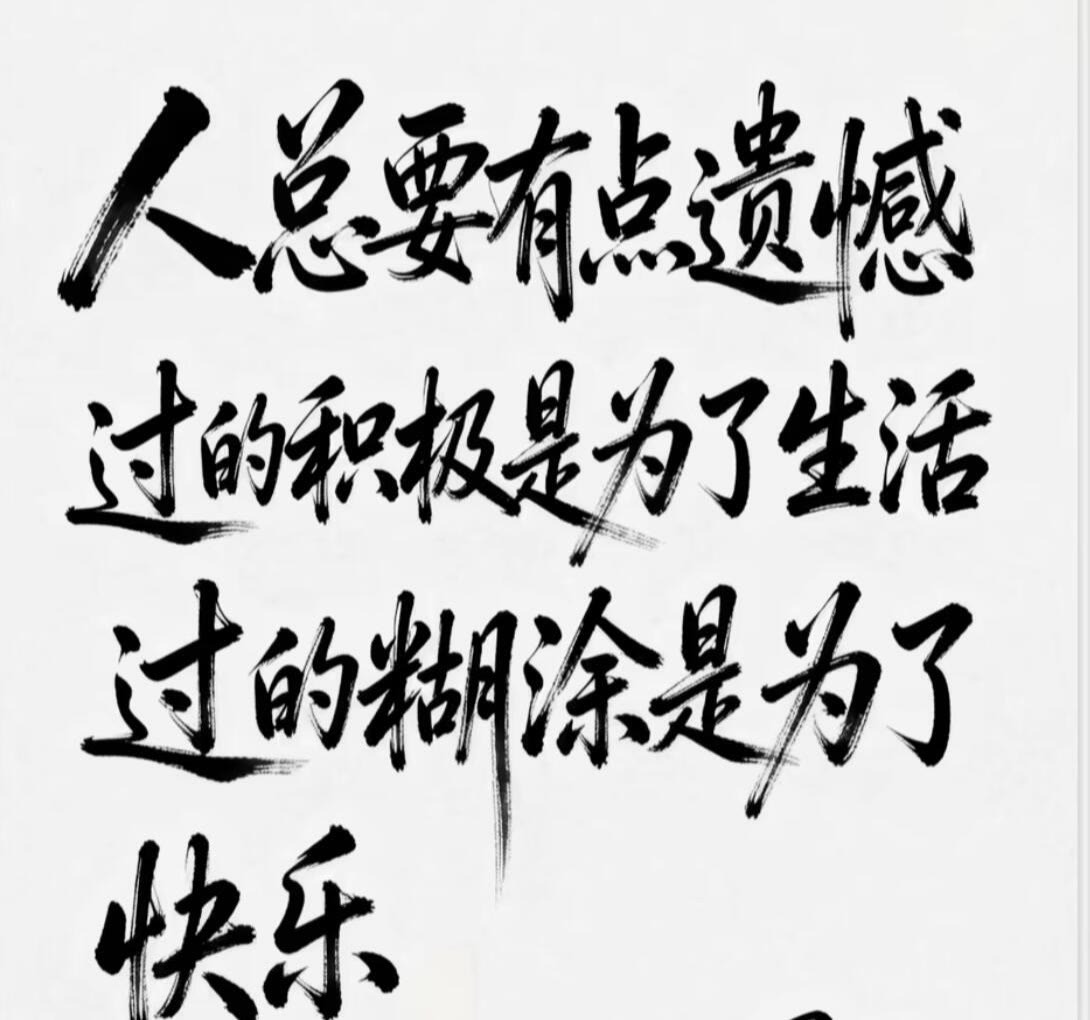 人总要有点遗憾
过的积极是为了生活
过的糊涂是为了
快乐